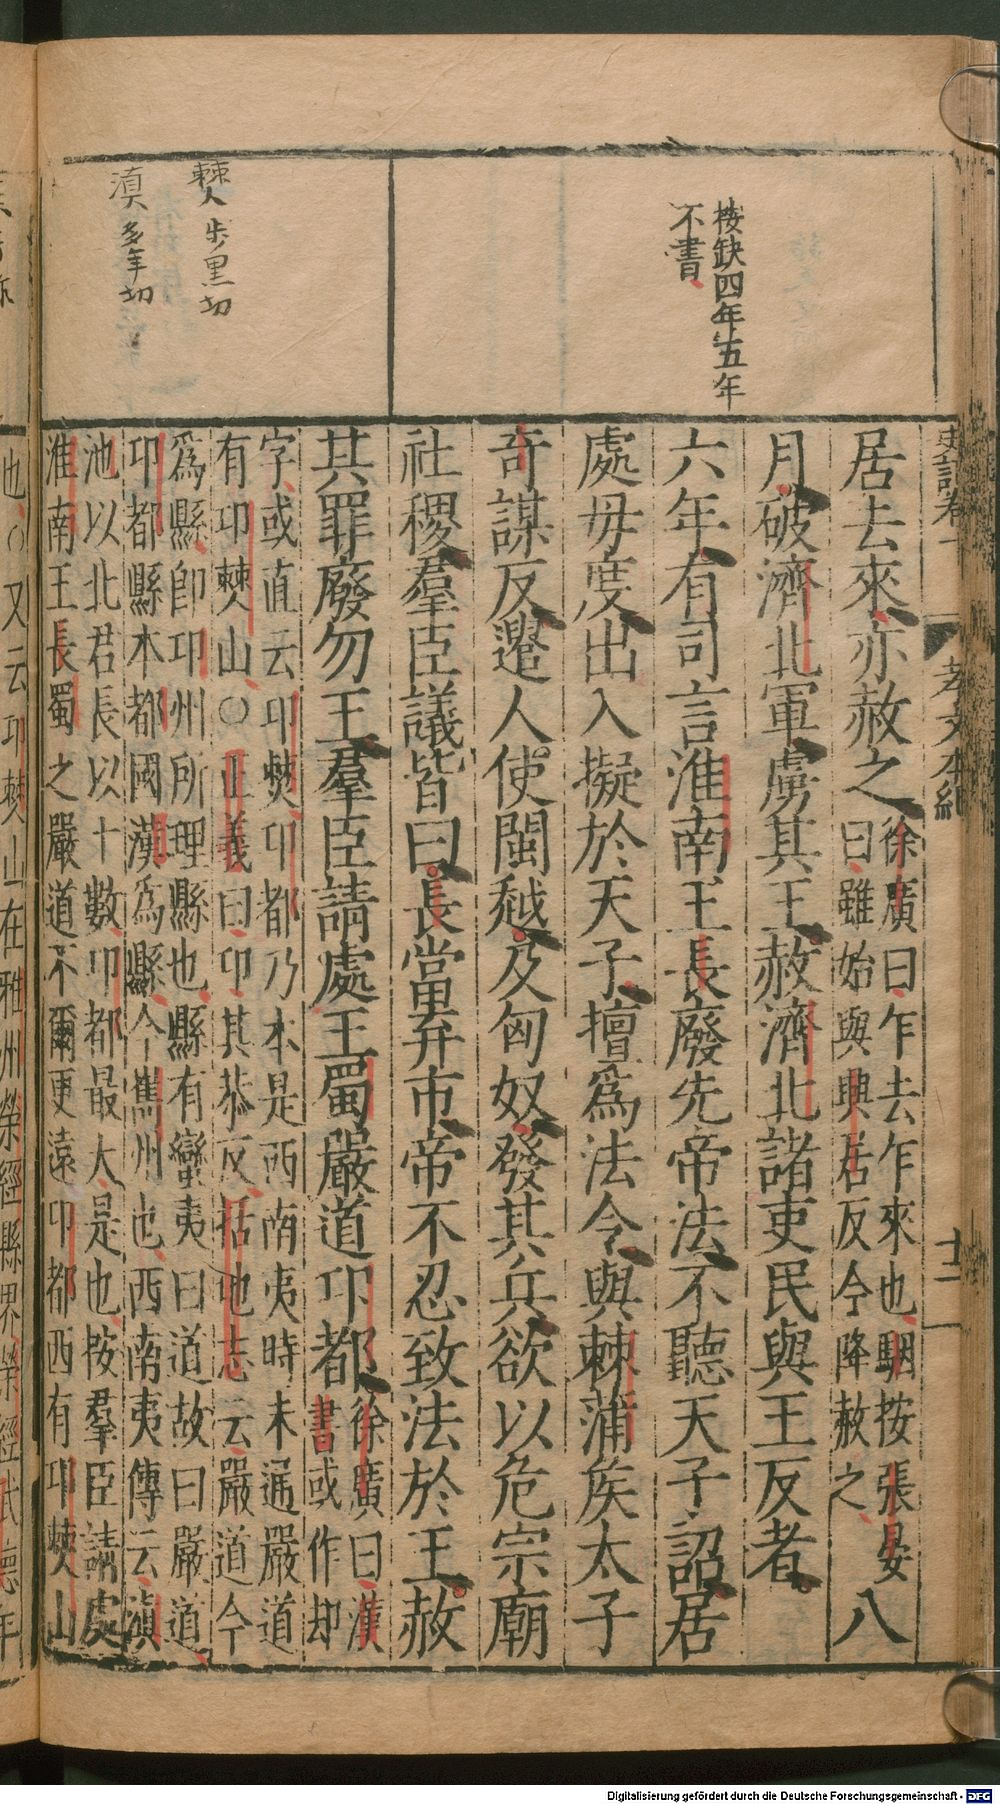 按缺四年五年
不書
僰 步黒切
滇 多年切
孝文本紀
十二
居去來亦赦之徐廣曰乍去乍來也駰按張晏
曰雖始與興居反今降赦之八
月破濟北軍虜其王赦濟北諸吏民與王反者
六年有司言淮南王長廢先帝法不聽天子詔居
處毋度出入擬於天子擅爲法令與棘蒲侯太子
奇謀反遣人使閩越及匈奴發其兵欲以危宗廟
社稷羣臣議皆曰長當弃市帝不忍致法於王赦
其罪廢勿王羣臣請處王蜀嚴道卭都徐廣曰漢
書或作却
字或直云卭僰卭都乃本是西南夷時未通嚴道
有卭僰山○正義曰卭其恭反括地志云嚴道今
爲縣卽卭州所理縣也縣有蠻夷曰道故曰嚴道
卭都縣本都國漢爲縣今巂州也西南夷傳云滇
池以北君長以十數卭都最大是也按羣臣請處
淮南王長蜀之嚴道不爾更遠卭都西有卭僰山
也○又云卭僰山在雅州榮經縣界榮經武德年
Digitalisierung gefördert durch die Deutsche Forschungsgemeinschaft - DFG